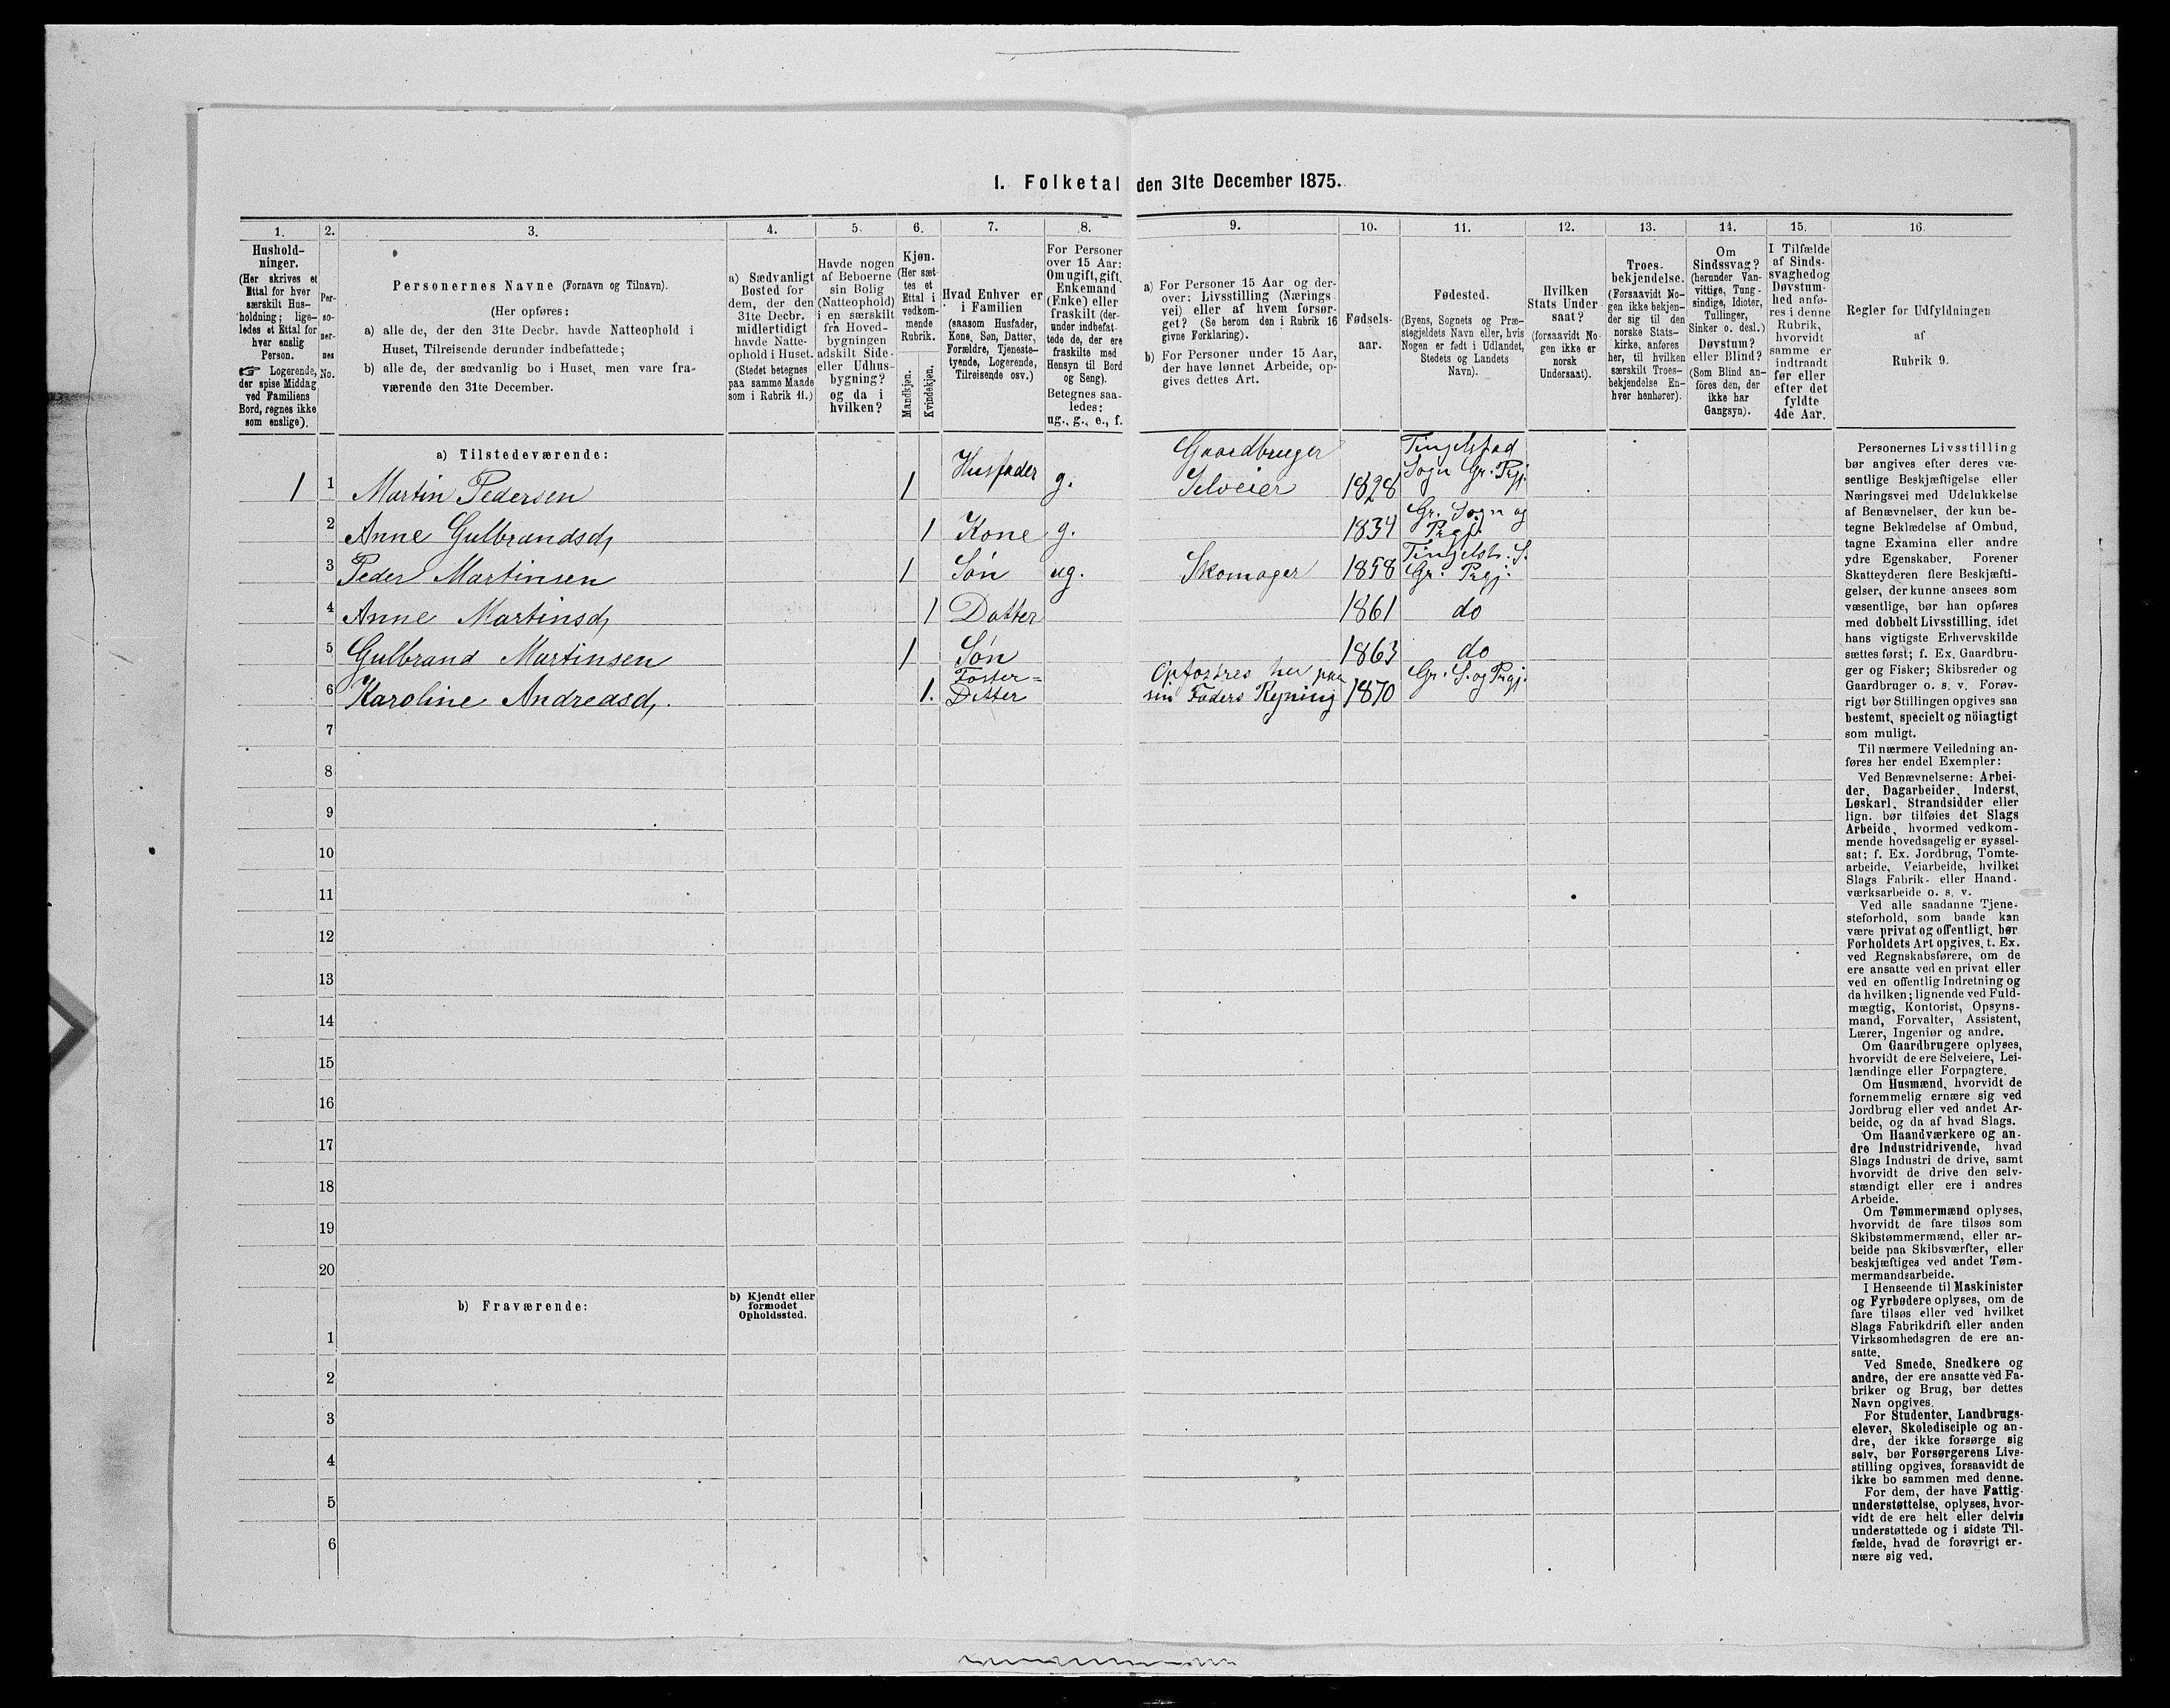 1. Folketal den 31te December 1875.
1.
Hushold-
ninger.
(Her skrives et
Ettal for hver
særskilt Hus-
holdning; lige-
ledes et Ettal for
hver enslig
Person.
☞ Logerende,
der spise Middag
ved Familiens
Bord, regnes ikke
som enslige).
2.
Per-
so-
ner-
nes
No.
3.
Personernes Navne (Fornavn og Tilnavn).
(Her opføres:
a) alle de, der den 31te Decbr. havde Natteophold i
Huset, Tilreisende derunder indbefattede;
b) alle de, der sædvanlig bo i Huset, men vare fra-
værende den 31te December.
4.
a) Sædvanligt
Bosted for
dem, der den
31te Decbr.
midlertidigt
havde Natte-
ophold i Huset.
(Stedet betegnes
paa samme Maade
som i Rubrik 11.)
5.
Havde nogen
af Beboerne
sin Bolig
(Natteophold)
i en særskilt
fra Hoved-
bygningen
adskilt Side-
eller Udhus-
bygning?
og da i
hvilken?
6.
Kjøn.
(Her sæt-
tes et
Ettal i
vedkom-
mende
Rubrik.
Mandkjøn.
Kvindekjøn.
7.
Hvad Enhver er
i Familien
(saasom Husfader,
Kone, Søn, Datter,
Forældre, Tjeneste-
tyende, Logerende,
Tilreisende osv.)
8.
For Personer
over 15 Aar:
Om ugift, gift,
Enkemand
(Enke) eller
fraskilt (der-
under indbefat-
tede de, der ere
fraskilte med
Hensyn til Bord
og Seng).
Betegnes saa-
ledes:
ug., g., e., f.
9.
a) For Personer 15 Aar og der-
over: Livsstilling (Nærings
vei) eller af hvem forsør-
get? (Se herom den i Rubrik 16
givne Forklaring).
b) For Personer under 15 Aar,
der have lønnet Arbeide, op-
gives dettes Art.
10.
Fødsels-
aar.
11.
Fødested.
(Byens, Sognets og Præ-
stegjeldets Navn eller, hvis
Nogen er født i Udlandet,
Stedets og Landets
Navn).
12.
Hvilken
Stats Under
saat?
(forsaavidt No-
gen ikke er
norsk
Undersaat).
13.
Troes-
bekjendelse.
(Forsaavidt No-
gen ikke bekjen-
der sig til den
norske Stats-
kirke, anføres
her, til hvilken
særskilt Troes-
bekjendelse En-
hver henhører).
14.
Om
Sindssvag?
(herunder Van-
vittige, Tung-
sindige, Idioter,
Tullinger,
Sinker o. desl.)
Døvstum?
eller Blind?
(Som Blind an-
føres den, der
ikke har
Gangsyn).
15.
I Tilfælde
af Sinds-
svaghed og
Døvstum-
hed anfø-
res i denne
Rubrik,
hvorvidt
samme er
indtraadt
før eller
efter det
fyldte
4de Aar.
16
Regler for Udfyldningen
af
Rubrik 9.
a) Tilstedeværende:
1 1 Martin Pedersen 1 Husfader g. Gaardbruger Selveier 1828 Tingelstad Sogn Gr. Prgj.
2 Anne Gulbrandsd, 1 Kone g. 1834 Gr. Sogn og Prgj.
3 Peder Martinsen 1 Søn ug. Skomager 1858 Tingelst. S. Gr. Prgj.
4 Anne Martinsd, 1 Datter 1861 do
5 Gulbrand Martinsen 1 Søn 1863 do
6 Karoline Andreasd, 1. Foster= Datter Opfostres her paa sin Faders Regning 1870 Gr. S. og Prgj.
7
8
9
10
11
12
13
14
15
16
17
18
19
20
b) Fraværende:
b) Kjendt eller
formodet
Opholdssted.
1
2
3
4
5
6
Personernes Livsstilling
bør angives efter deres væ-
sentlige Beskjæftigelse eller
Næringsvei med Udelukkelse
af Benævnelser, der kun be-
tegne Beklædelse af Ombud,
tagne Examina eller andre
ydre Egenskaber. Forener
Skatteyderen flere Beskjæfti-
gelser, der kunne ansees som
væsentlige, bør han opføres
med dobbelt Livsstilling, idet
hans vigtigste Erhvervskilde
sættes først; f. Ex. Gaardbru-
ger og Fisker; Skibsreder og
Gaardbruger o. s. v. Forøv-
rigt bør Stillingen opgives saa
bestemt, specielt og nöiagtigt
som muligt.
Til nærmere Veiledning an-
føres her endel Exempler:
Ved Benævnelserne: Arbei-
der, Dagarbeider, Inderst,
Løskarl, Strandsidder eller
lign. bør tilføies det Slags
Arbeide, hvormed vedkom-
mende hovedsagelig er syssel-
sat; f. Ex. Jordbrug, Tomte-
arbeide, Veiarbeide, hvilket
Slags Fabrik- eller Haand-
værksarbeide o. s. v.
Ved alle saadanne Tjene-
steforhold, som baade kan
være privat og offentligt, bør
Forholdets Art opgives, t. Ex.
ved Regnskabsførere, om de
ere ansatte ved en privat eller
ved en offentlig Indretning og
da hvilken; lignende ved Fuld-
mægtig, Kontorist, Opsyns-
mand, Forvalter, Assistent,
Lærer, Ingeniør og andre.
Om Gaardbrugere oplyses,
hvorvidt de ere Selveiere, Lei-
lændinge eller Forpagtere.
Om Husmænd, hvorvidt de
fornemmelig ernære sig ved
Jordbrug eller ved andet Ar-
beide, og da af hvad Slags.
Om Haandværkere og an-
dre Industridrivende, hvad
Slags Industri de drive, samt
hvorvidt de drive den selv-
stændigt eller ere i andres
Arbeide.
Om Tømmermænd oplyses,
hvorvidt de fare tilsøs som
Skibstømmermænd, eller ar-
beide paa Skibsværfter, eller
beskjæftiges ved andet Tøm-
mermandsarbeide.
I Henseende til Maskinister
og Fyrbødere oplyses, om de
fare tilsøs eller ved hvilket
Slags Fabrikdrift eller anden
Virksomhedsgren de ere an-
satte.
Ved Smede, Snedkere og
andre, der ere ansatte ved Fa-
briker og Brug, bør dettes
Navn opgives.
For Studenter, Landbrugs-
elever, Skoledisciple og an-
dre, der ikke forsørge sig
selv, bør Forsørgerens Livs-
stilling opgives, forsaavidt de
ikke bo sammen med denne.
For dem, der have Fattig-
understøttelse, oplyses, hvor-
vidt de ere helt eller delvis
understøttede og i sidste Til-
fælde, hvad de forøvrigt er-
nære sig ved.